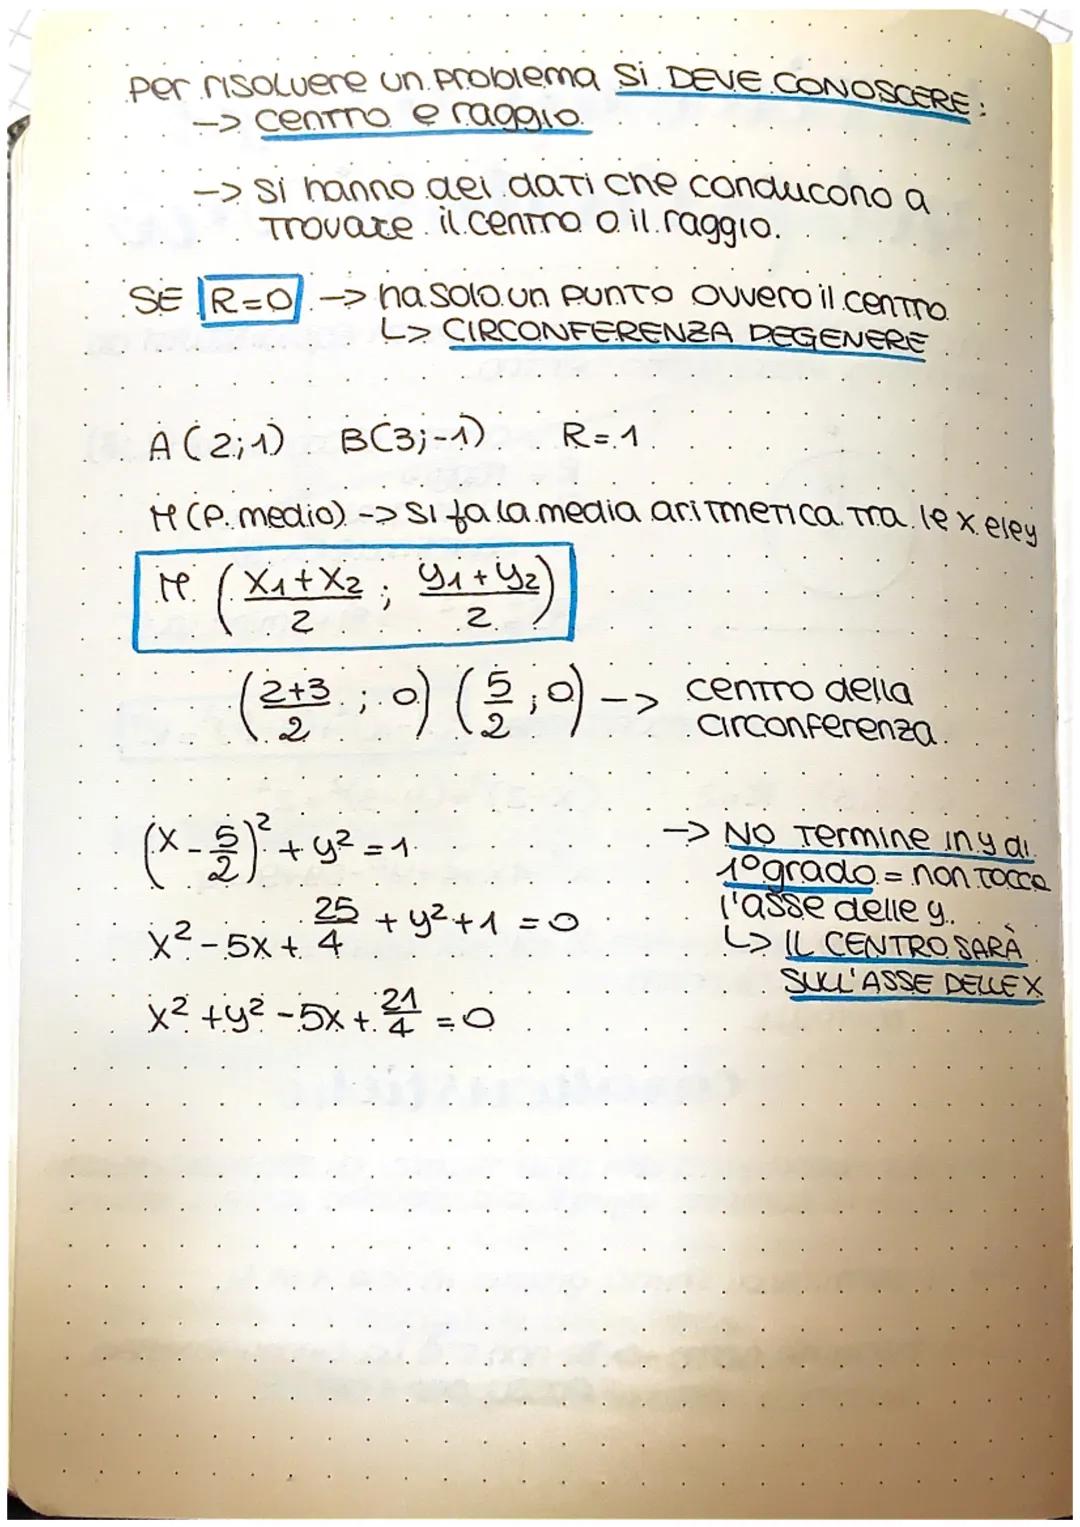 Per risolvere un problema SI DEVE CONOSCERE:
-> centro e raggio
-> Si hanno dei dati che conducono a
trovare il centro o il raggio.
SE R=0 -> ha solo un punto ovvero il centro
↳ CIRCONFERENZA DEGENERE
A (2;1) B(3;-1) R=1
M (P. medio) -> si fa la media aritmetica tra le x e le y
M (x₁+x₂/2 ; y₁+y₂/2)
(2+3/2 ; 0) (5/2 ; 0) -> centro della
circonferenza.
(x - 5/2)² + y² = 1
x² - 5x + 25/4 + y² + 1 = 0
x² + y² - 5x + 21/4 = 0
-> NO termine in y di
1º grado = non tocca
l'asse delle y.
↳ IL CENTRO SARÀ
SULL'ASSE DELLE X